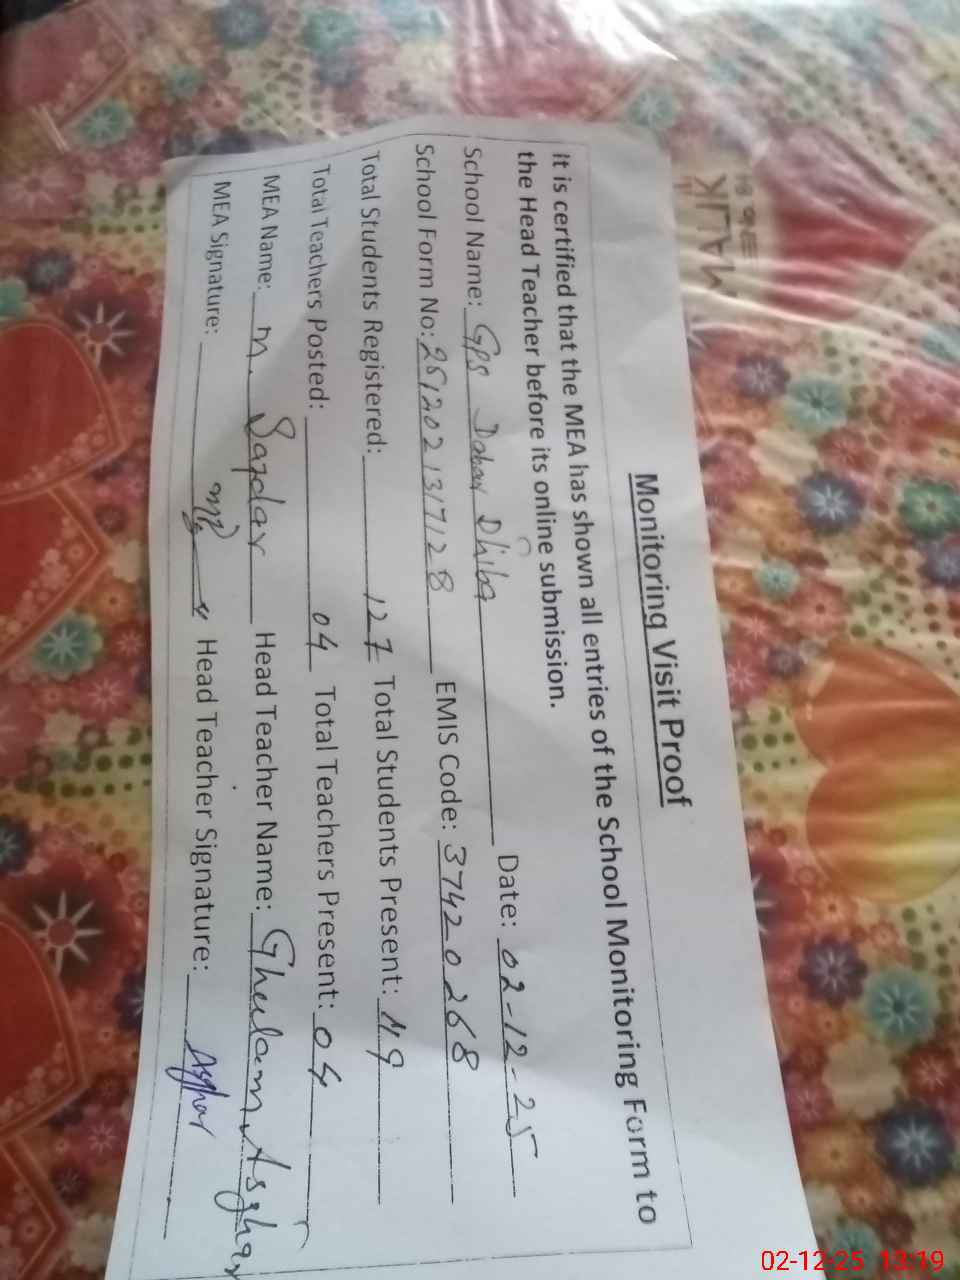 Monitoring Visit Proof
It is certified that the MEA has shown all entries of the School Monitoring Form to
the Head Teacher before its online submission.
School Name: GPS Dohar Dhiba Date: 02-12-25
School Form No: 2512021317128 EMIS Code: 37420268
Total Students Registered: 127 Total Students Present: 119
Total Teachers Posted: 04 Total Teachers Present: 04
MEA Name: M. Safdar Head Teacher Name: Ghulam Asghar
MEA Signature: Head Teacher Signature: Asghar
MALIK
02-12-25 13:19